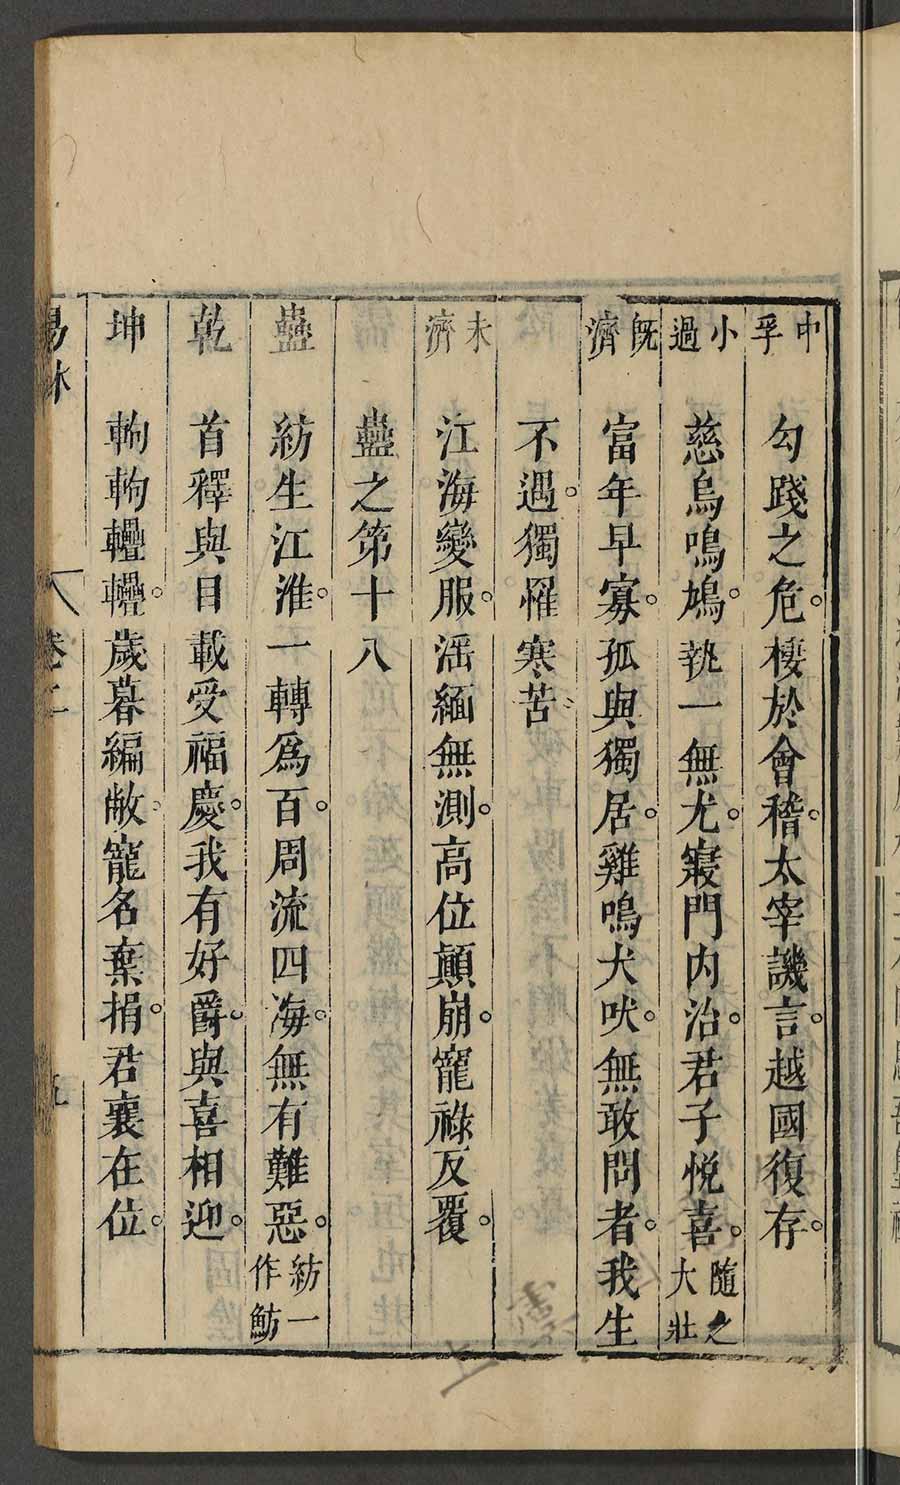 中孚 勾踐之危棲於會稽太宰譏言越國復存
小過 慈烏鳴鳩執一無尤寢門内治君子悅喜 隨之大壯
旣濟 富年早寡孤與獨居雞鳴犬吠無敢問者我生
不遇獨懼寒苦
未濟 江海變服淫緬無測高位顛崩寵祿反覆
蠱之第十八
蠱 紡生江淮一轉爲百周流四海無有難惡 紡一作魴
乾 首釋與目載受福慶我有好爵與喜相迎
坤 軥軥轠轠歲暮編敝寵名棄捐君衰在位
易林 卷二